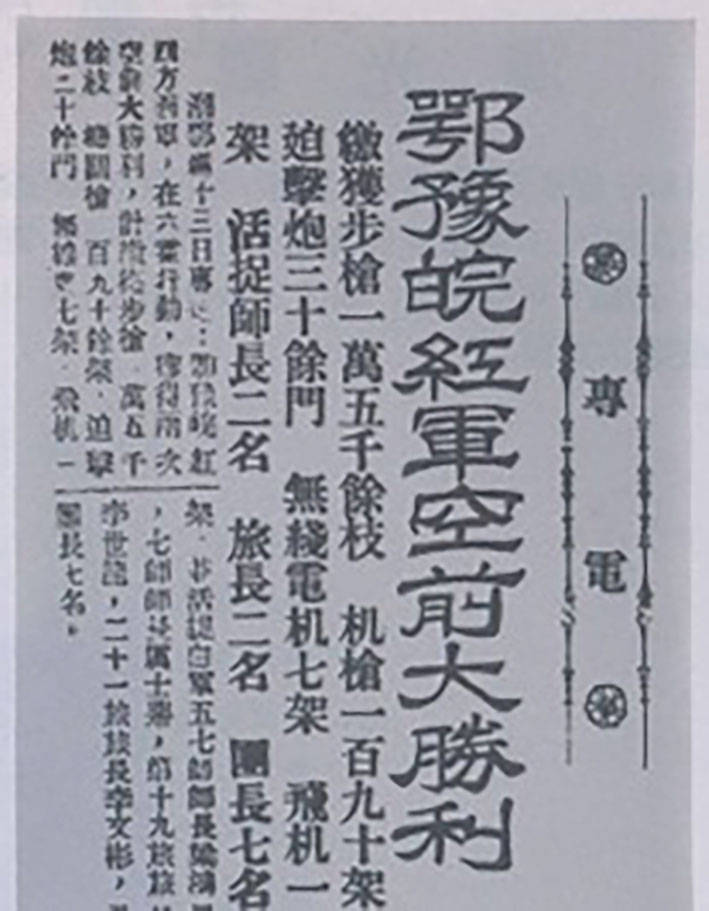 專電
鄂豫皖紅軍空前大勝利
繳獲步槍一萬五千餘枝 机槍一百九十架
迫擊炮三十餘門 無綫電机七架 飛机一
架 活捉師長二名 旅長二名 團長七名
十三日專
四方面軍，在六霍行動，獲得兩次
空前大勝利，計繳獲步槍一萬五千
餘枝 機關槍一百九十餘架．迫擊
炮三十餘門 無綫電七架．飛机一
架．並活捉白軍五七師師長
，七師師長厲士鼎，第十九旅旅
李世，二十一旅旅長李文彬，
團長七名。